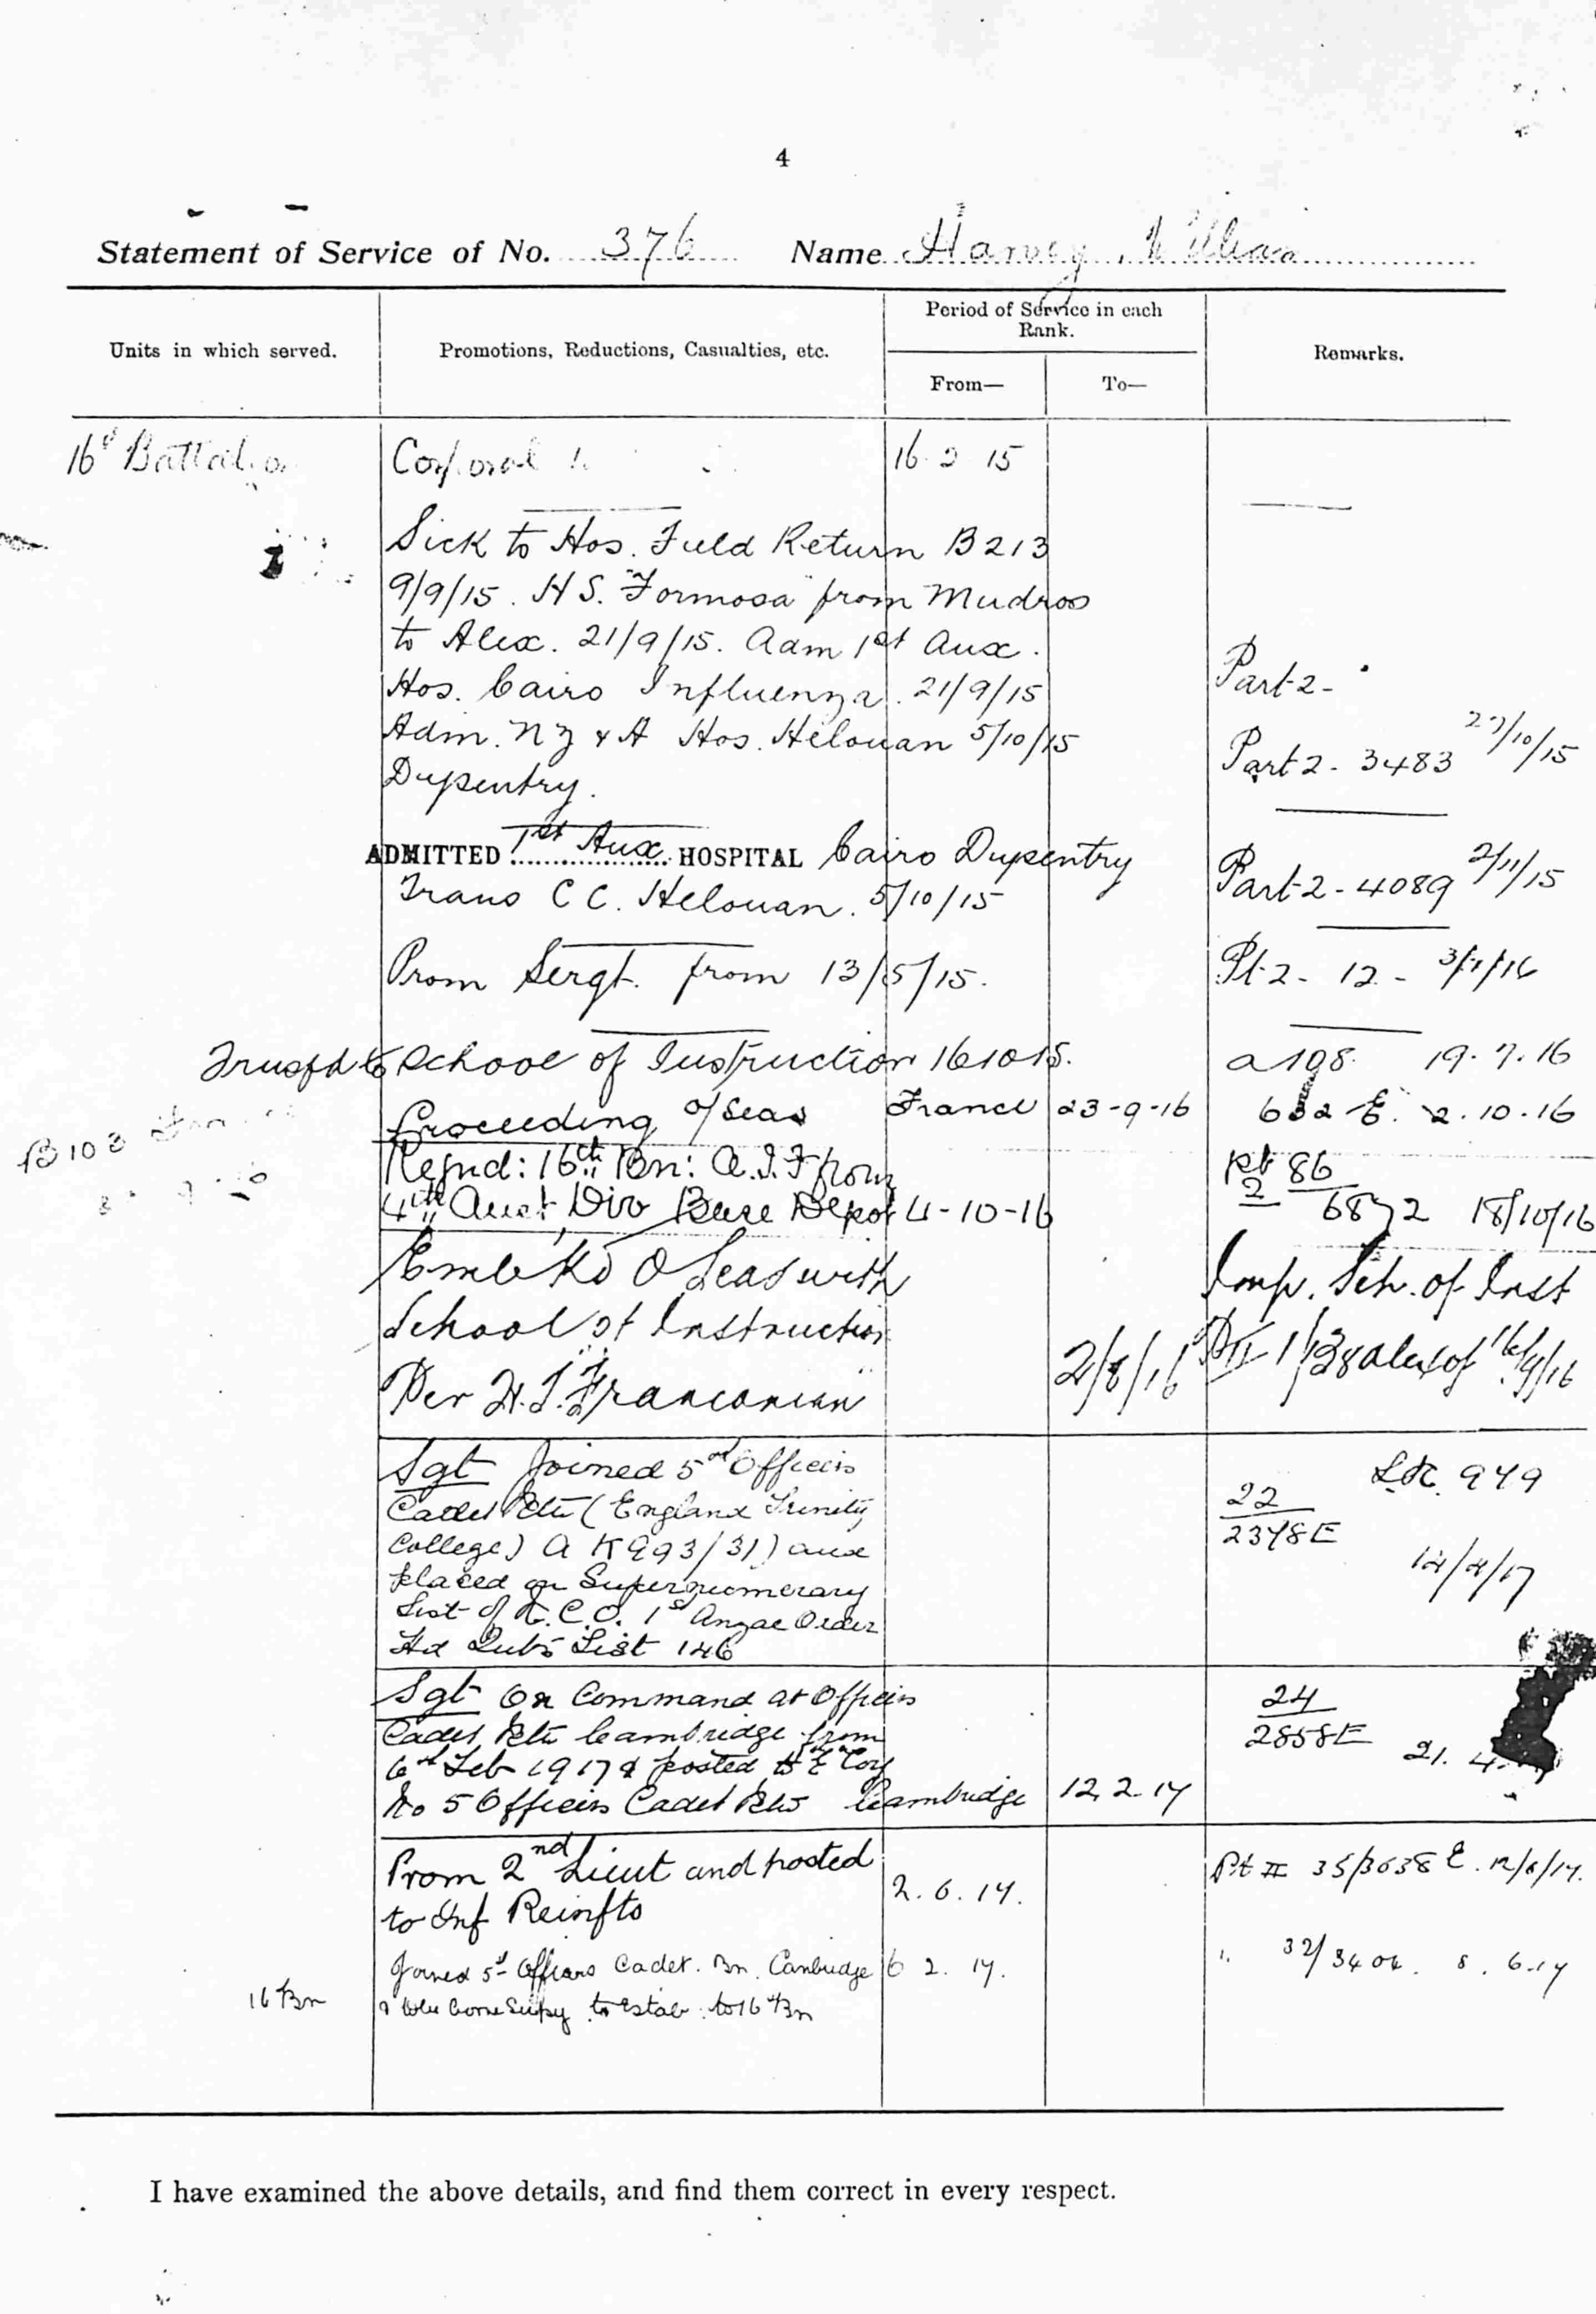 4
Statement of Service of No. 376 Name Harvey, William
Units in which served.
Promotions, Reductions, Casualties, etc.
Period of Service in each Rank.
From—
To—
Remarks.
16th Battalion Corporal 16 2 15
Sick to Hos. Field Return B213
9/9/15. H S. "Formosa" from Mudros
to Alex. 21/9/15. Adm 1st Aux.
Hos. Cairo Influenza. 21/9/15 Part 2-
Adm. NZ & A Hos. Helouan 5/10/15 Part 2 - 3483 27/10/15
Dysentry.
ADMITTED 1st Aux HOSPITAL Cairo Dysentry Part 2 - 4089 2/11/15
Trans C C. Helouan. 5/10/15
Prom Sergt. from 13/5/15. Pt 2 - 12 - 3/1/16
Trusfd to School of Instruction 161015. a 108. 19.7.16
Proceeding o/seas France 23-9-16 682 E. 2.10.16
B103
Rejnd: 16th Bn: A.I.F from Pt 2 86
4th Aust Div Base Depot 4-10-16 6872 18/10/16
Embkd O Seas with Imp. Sch. of Inst
School of Instruction
Per H.T. "Franconian" 2/8/16
Sgt Joined 5th Officers LR. 949
Cadet Btn (England Trinity 22/2378E
College) A K 993/31) and 14/4/17
placed on Supernumerary
List of N.C.O. 1st Anzac Order
Hd Qubs List 146
Sgt On Command at Officers 24/2858E
Cadet Btn Cambridge from 21. 4.
6th Feb 1917 & posted to "E" Coy
No 5 Officers Cadet Btn Cambridge 12.2.17
Prom 2nd Lieut and posted Pt II 35/3638 E. 12/6/17.
to Inf Reinfts 2.6.17.
Joined 5th Officers Cadet. Bn. Canbridge 6 2. 17. " 32/3404. 8.6.17
16 Bn & to Estab. to 16th Bn
I have examined the above details, and find them correct in every respect.